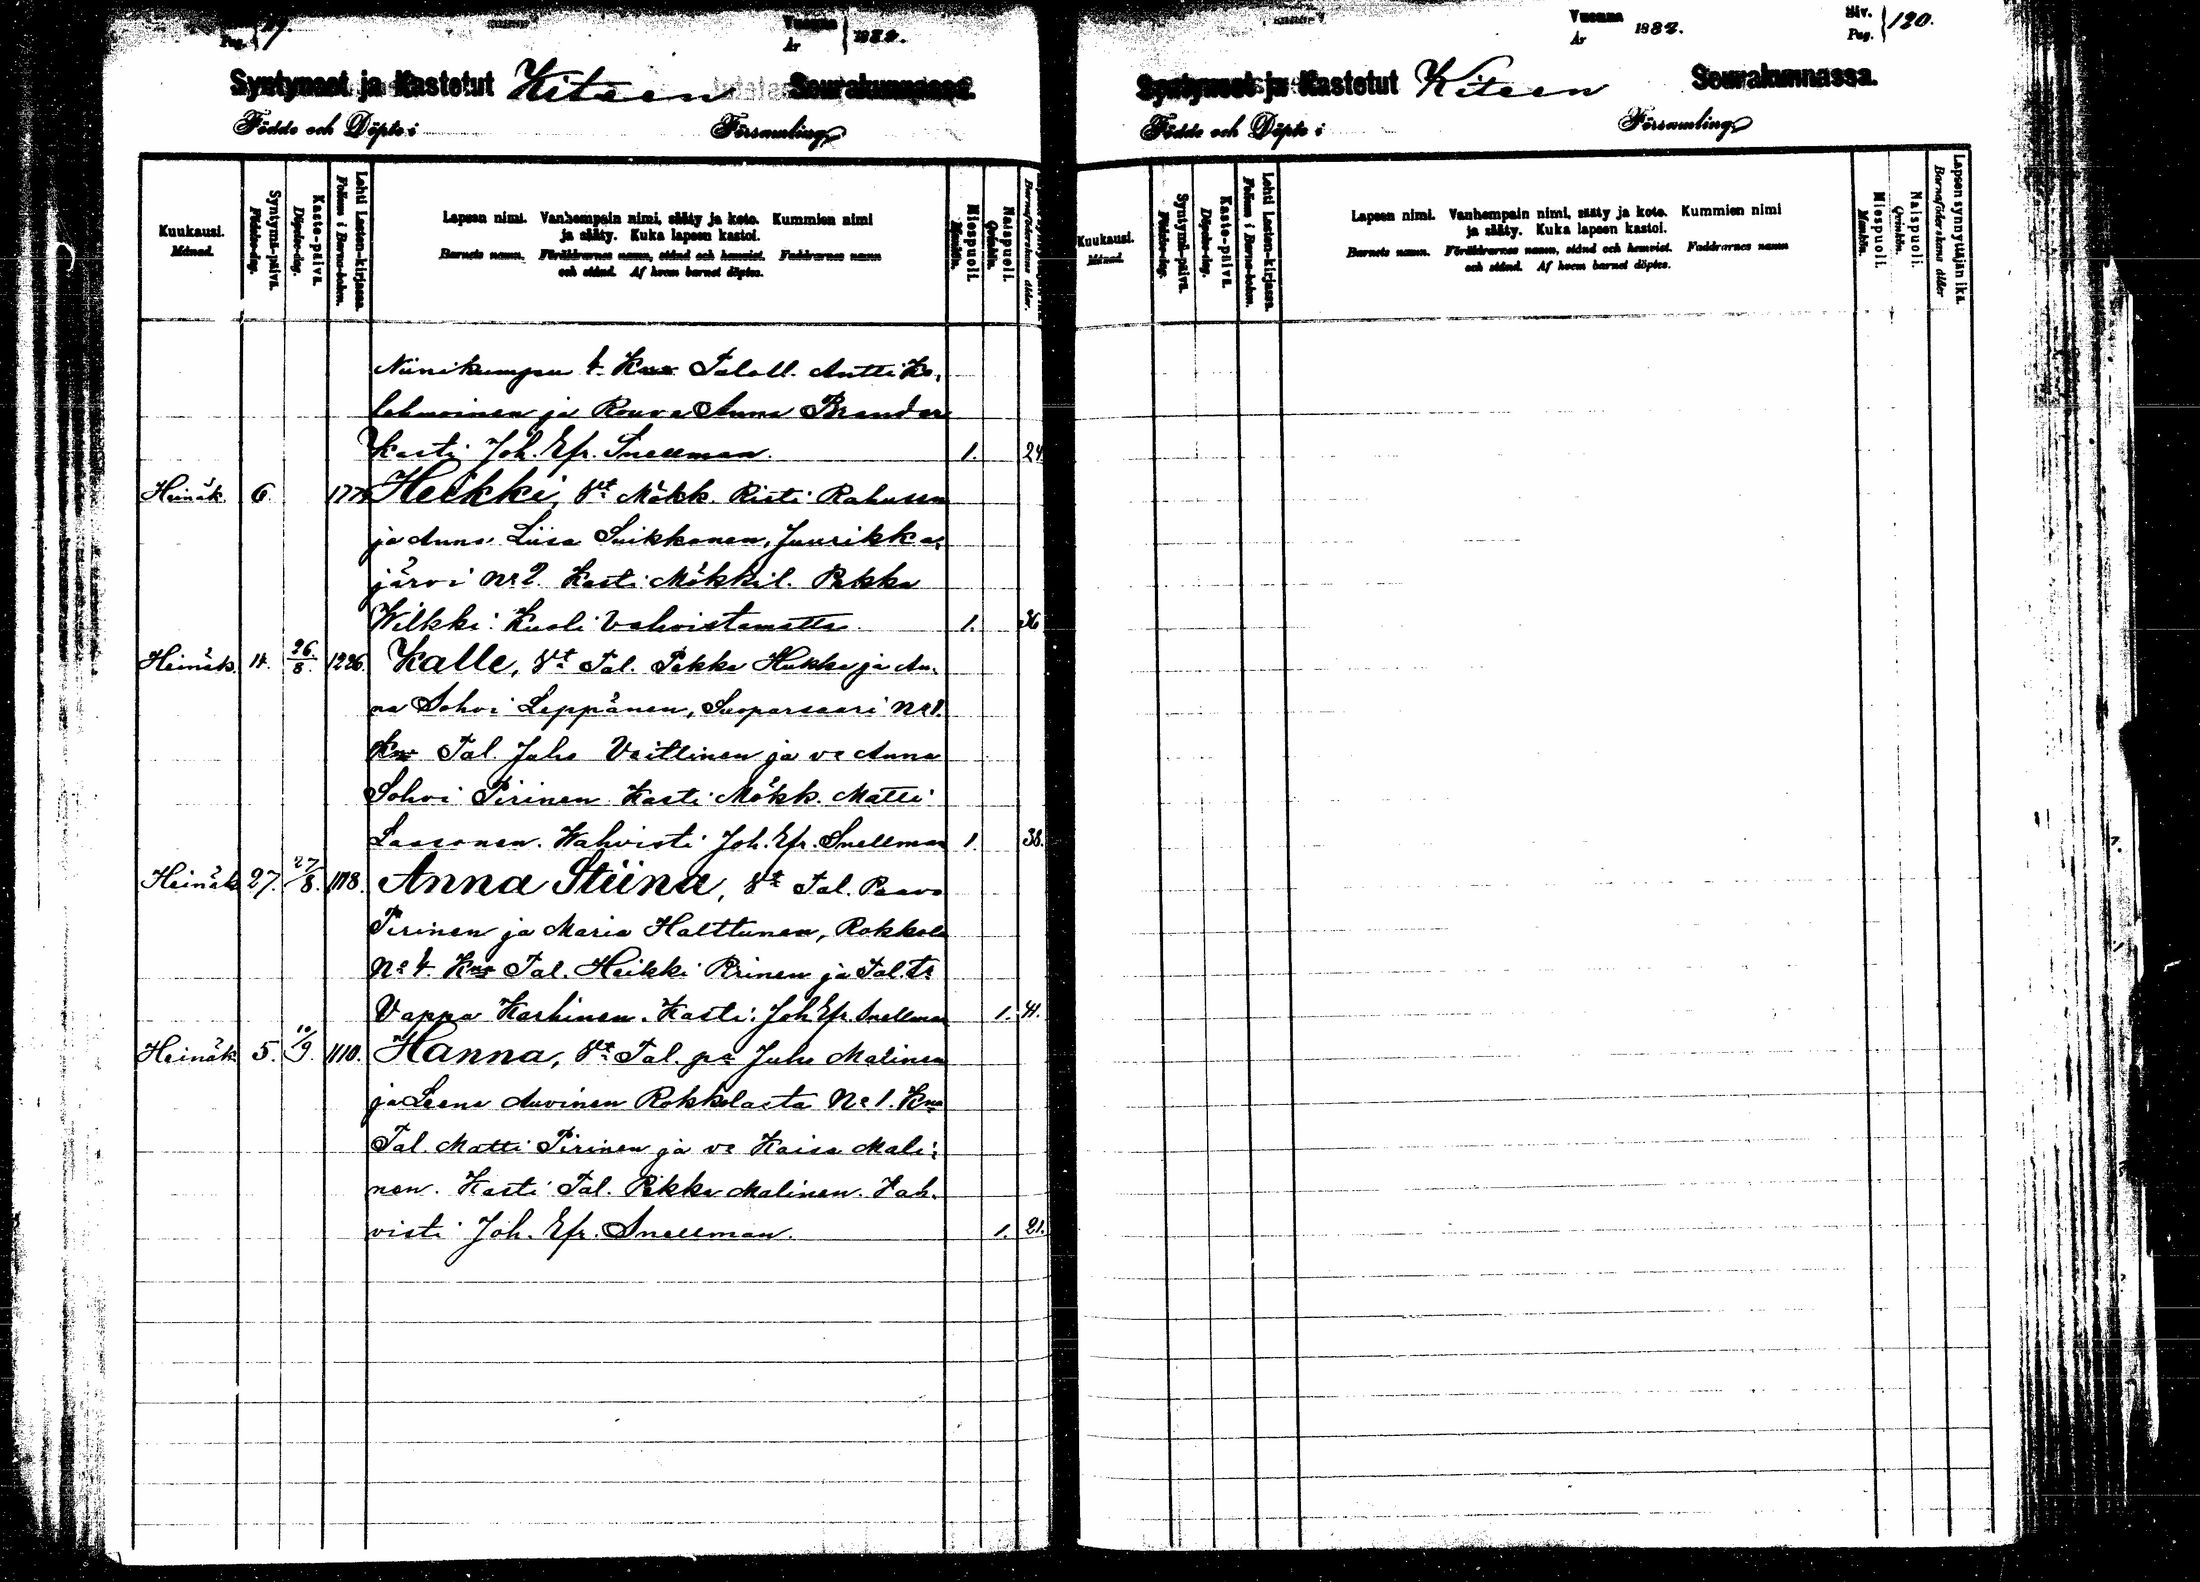 Pag.
Vuonna
År 188
Syntyneet ja Kastetut Kiteen Seurakunnassa.
Födde och Döpte i Församling
Kuukausi.
Månad.
Syntymä-päivä.
Födelse-dag.
Kaste-päivä.
Döpelse-dag.
Lehti Lasten-kirjassa.
Folium i Barna-boken.
Lapsen nimi. Vanhempain nimi, sääty ja koto. Kummien nimi
ja sääty. Kuka lapsen kastoi.
Barnets namn. Föräldrarnes namn, stånd och hemvist. Faddrarnes namn
och stånd. Af hvem barnet döptes.
Miespuoli.
Mankön.
Naispuoli.
Qvinkön.
Niinikumpu 4. Kna Taloll. Antti Ko,
lehmoinen ja Rouva Anna Brander
Kasti Joh. Efr. Snellman. 1. 24
Heinäk. 6. 1774 Heikki, Vt Mökk. Risti Rahunen
ja Anna Liisa Suikkanen, Juurikka,
järvi No 2. Kasti Mökkil. Pekka
Wilkki. Kuoli vahvistamatta. 1. 36
Heinäk. 14. 26/8. 1226. Kalle, Vt Tal. Pekka Hukka ja An,
na Sohvi Leppänen, Suoparsaari No 1.
Kna Tal. Juho Vaittinen ja vo Anna
Sohvi Pirinen Kasti Mökk. Matti
Sassonen. Wahvisti Joh. Efr. Snellman 1. 38.
Heinäk 27. 27/8. 1118. Anna Stiina, Vt Tal. Paavo
Pirinen ja Maria Halttunen, Rokkala
No 4. Kna Tal. Heikki Pirinen ja Tal. tr
Vappu Karhinen. Kasti: Joh Efr. Snellman 1. 41.
Heinäk 5. 10/9. 1110. Hanna, Vt Tal. pa Juho Malinen
ja Leena Auvinen Rokkolasta No 1. Kna
Tal. Matti Pirinen ja vo Kaisa Mali,
nen. Kasti Tal. Pekka Malinen. Vah,
visti Joh. Efr. Snellman. 1. 21.
Vuonna
År 1882.
Siv.
Pag. 120.
Syntyneet ja Kastetut Kiteen Seurakunnassa.
Födde och Döpte i Församling
Kuukausi.
Månad.
Syntymä-päivä.
Födelse-dag.
Kaste-päivä.
Döpelse-dag.
Lehti Lasten-kirjassa.
Folium i Barna-boken.
Lapsen nimi. Vanhempain nimi, sääty ja koto. Kummien nimi
ja sääty. Kuka lapsen kastoi.
Barnets namn. Föräldrarnes namn, stånd och hemvist. Faddrarnes namn
och stånd. Af hvem barnet döptes.
Miespuoli.
Mankön.
Naispuoli.
Qvinkön.
Lapsensynnyttäjän ikä.
Barnaföderskans ålder